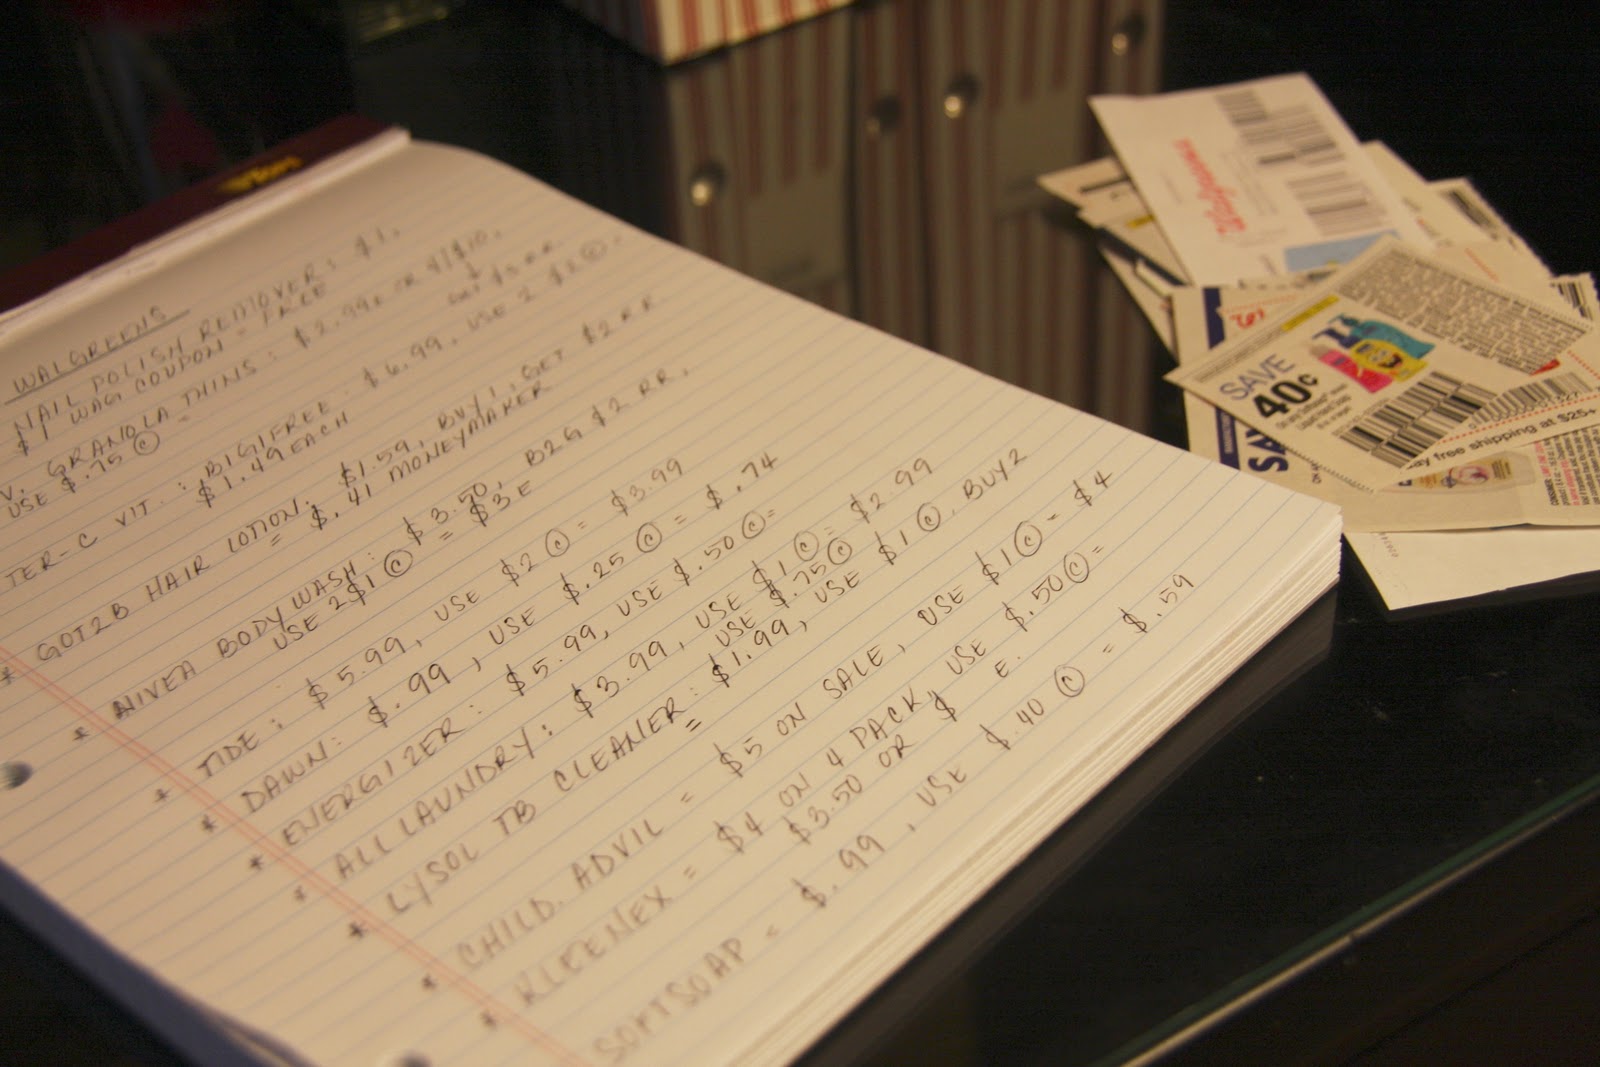 WALGREENS
NAIL POLISH REMOVER: $1,
$1 WAG COUPON = FREE
V. GRANOLA THINS: $2.99E OR 4/$10,
USE $.75 Ⓒ = GET $3 RR
TER-C VIT.: BIG1FREE. $6.99, USE 2 $2 Ⓒ.
$1.49 EACH
* GOT2B HAIR LOTION: $1.59, BUY 1, GET $2 RR
= $.41 MONEYMAKER
* NIVEA BODY WASH: $3.50, B2G $2 RR,
USE 2 $1 Ⓒ = $3 E
* TIDE: $5.99, USE $2 Ⓒ = $3.99
* DAWN: $.99, USE $.25 Ⓒ = $.74
* ENERGIZER: $5.99, USE $.50 Ⓒ =
* ALL LAUNDRY: $3.99, USE $1 Ⓒ = $2.99
USE $.75 Ⓒ
* LYSOL TB CLEANER: $1.99, USE $1 Ⓒ, BUY 2
=
* CHILD. ADVIL = $5 ON SALE, USE $1 Ⓒ = $4
* KLEENEX = $4 ON 4 PACK, USE $.50 Ⓒ =
$3.50 OR $ E.
SOFTSOAP = $.99, USE $.40 Ⓒ = $.59
Walgreens
SAVE
40¢
SA
ay free shipping at $25+